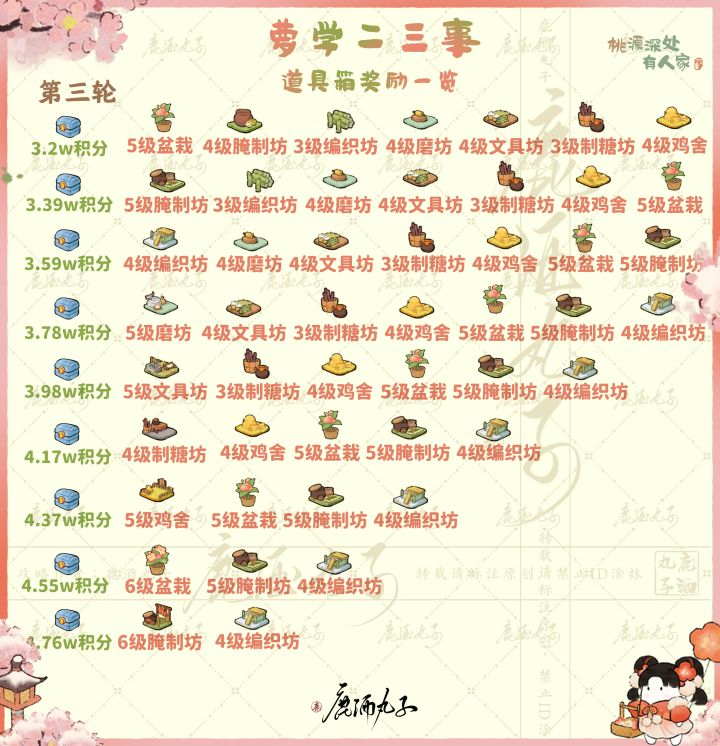 萝学二三事
桃源深处
有人家
道具箱奖励一览
第三轮
3.2w积分 5级盆栽 4级腌制坊 3级编织坊 4级磨坊 4级文具坊 3级制糖坊 4级鸡舍
3.39w积分 5级腌制坊 3级编织坊 4级磨坊 4级文具坊 3级制糖坊 4级鸡舍 5级盆栽
3.59w积分 4级编织坊 4级磨坊 4级文具坊 3级制糖坊 4级鸡舍 5级盆栽 5级腌制坊
3.78w积分 5级磨坊 4级文具坊 3级制糖坊 4级鸡舍 5级盆栽 5级腌制坊 4级编织坊
3.98w积分 5级文具坊 3级制糖坊 4级鸡舍 5级盆栽 5级腌制坊 4级编织坊
4.17w积分 4级制糖坊 4级鸡舍 5级盆栽 5级腌制坊 4级编织坊
4.37w积分 5级鸡舍 5级盆栽 5级腌制坊 4级编织坊
4.55w积分 6级盆栽 5级腌制坊 4级编织坊
.76w积分 6级腌制坊 4级编织坊
转载请标注原创 禁止ID涂抹
鹿洒丸子